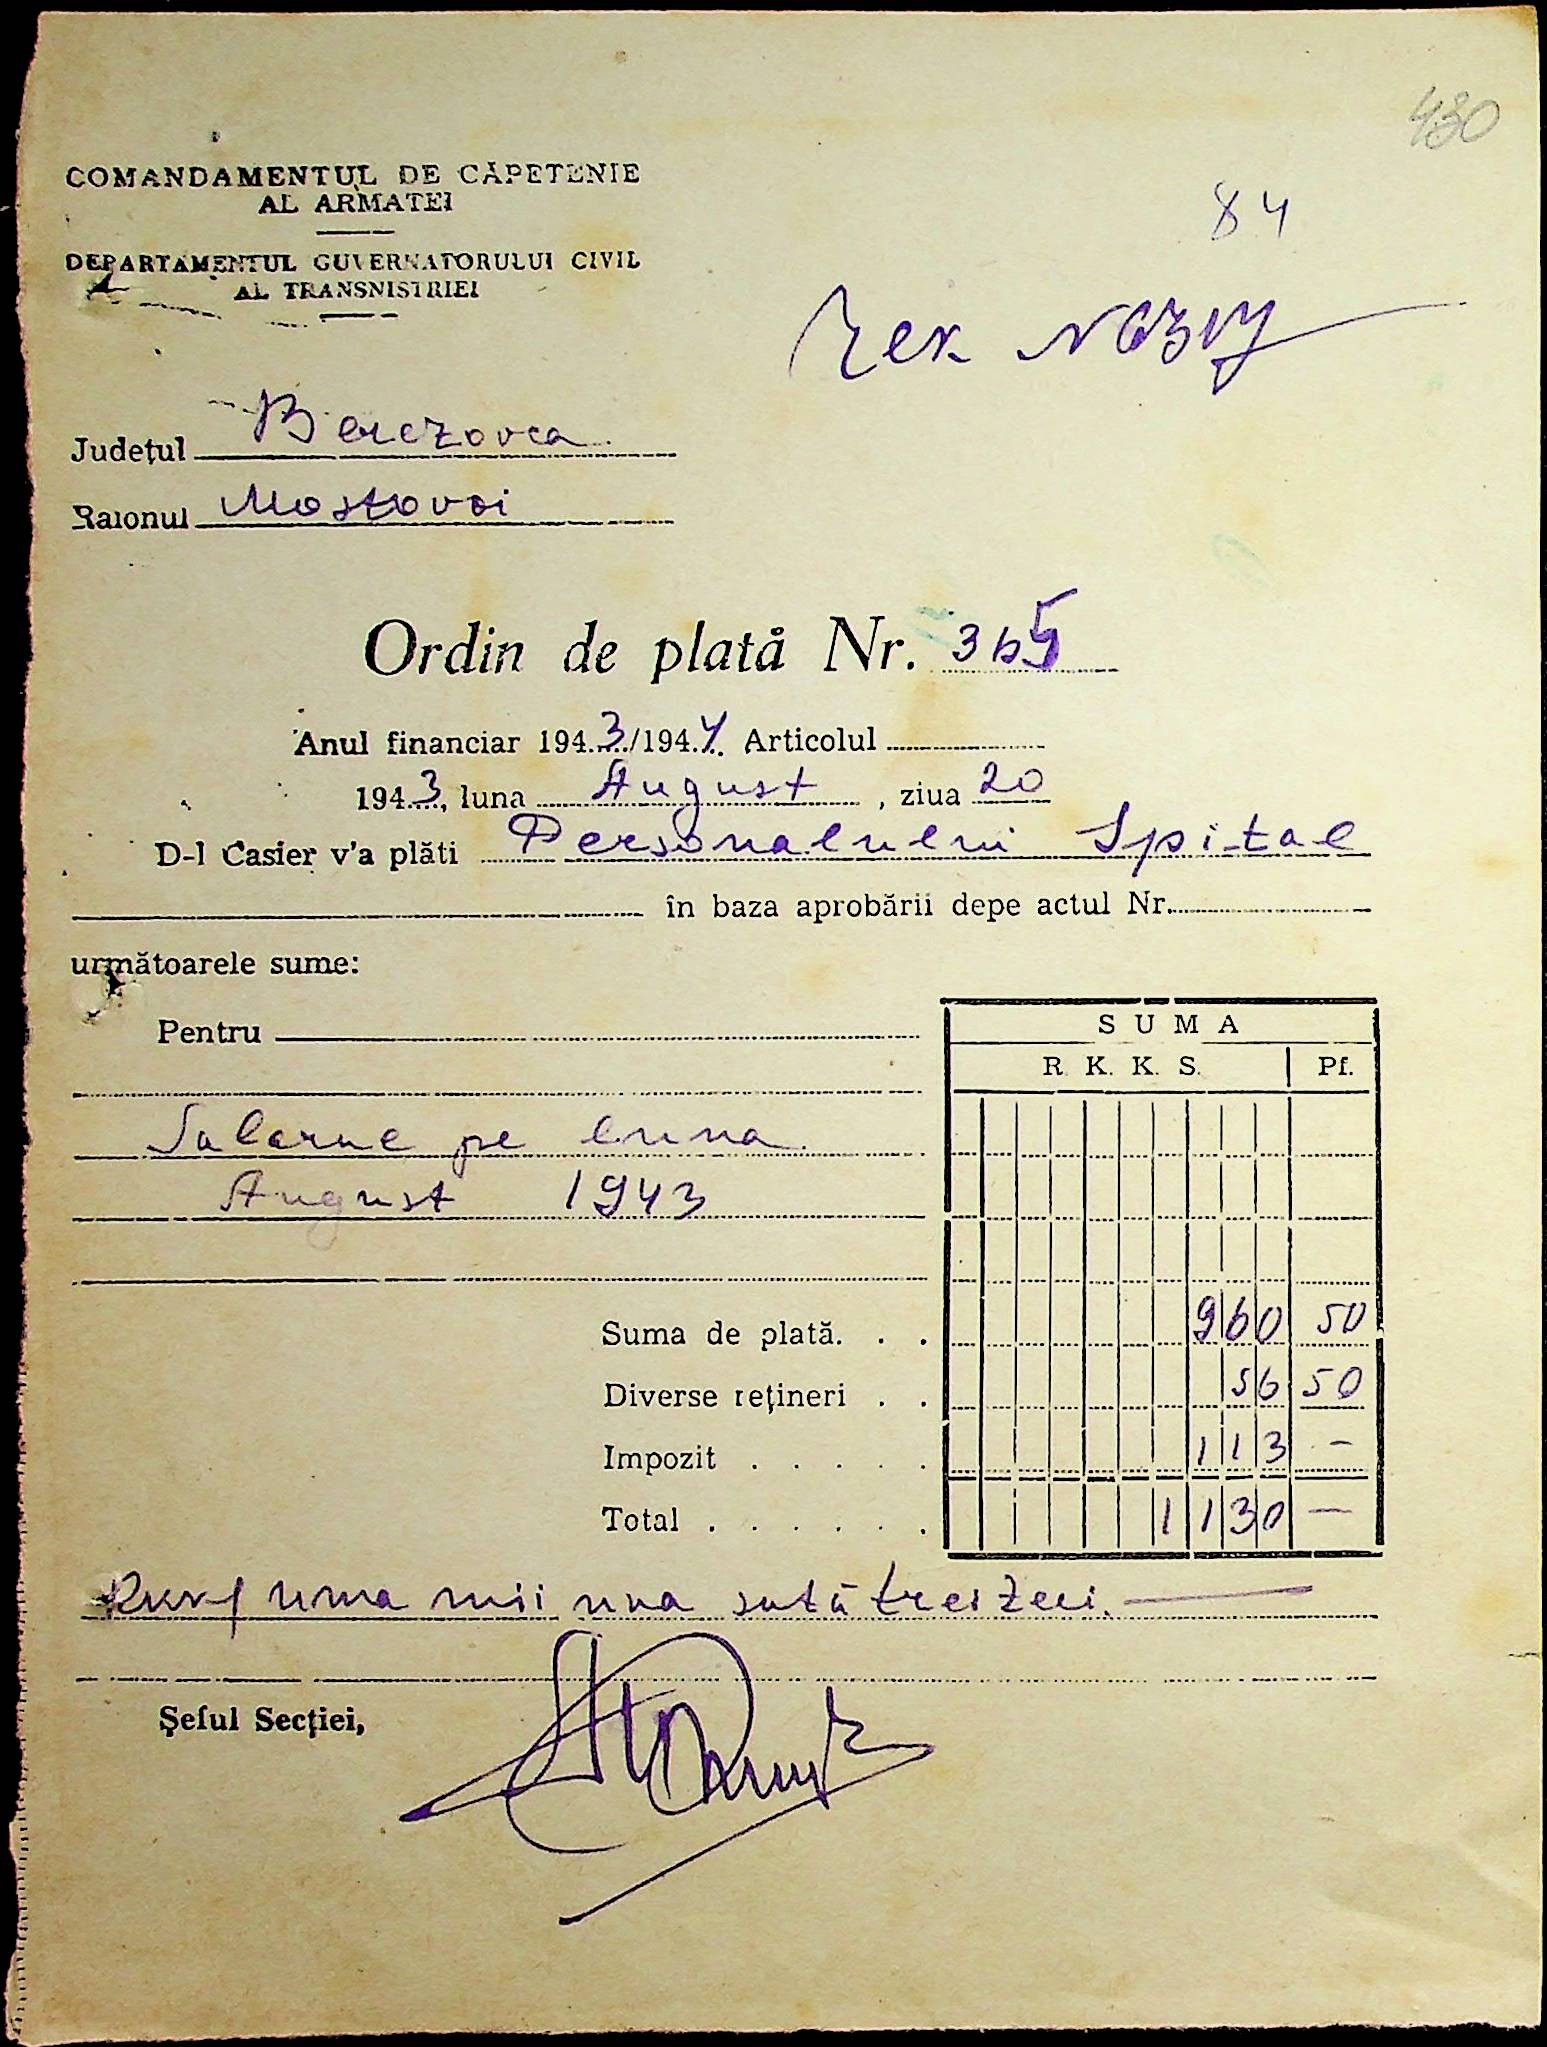 430
84
COMANDAMENTUL DE CĂPETENIE
AL ARMATEI
DEPARTAMENTUL GUVERNATORULUI CIVIL
AL TRANSNISTRIEI
Județul Berezovca
Raionul Mostovoi
Ordin de plată Nr. 365
Anul financiar 1943/1944. Articolul
1943, luna August, ziua 20
D-l Casier v'a plăti Personalului Spital
în baza aprobării depe actul Nr.
următoarele sume:
Pentru
SUMA
R. K. K. S. Pf.
Salarul pe luna
August 1943
Suma de plată. . . 960 50
Diverse rețineri . . 56 50
Impozit . . . . . 113 —
Total . . . . . . 1130 —
una mii una sută treizeci. —
Șeful Secției,